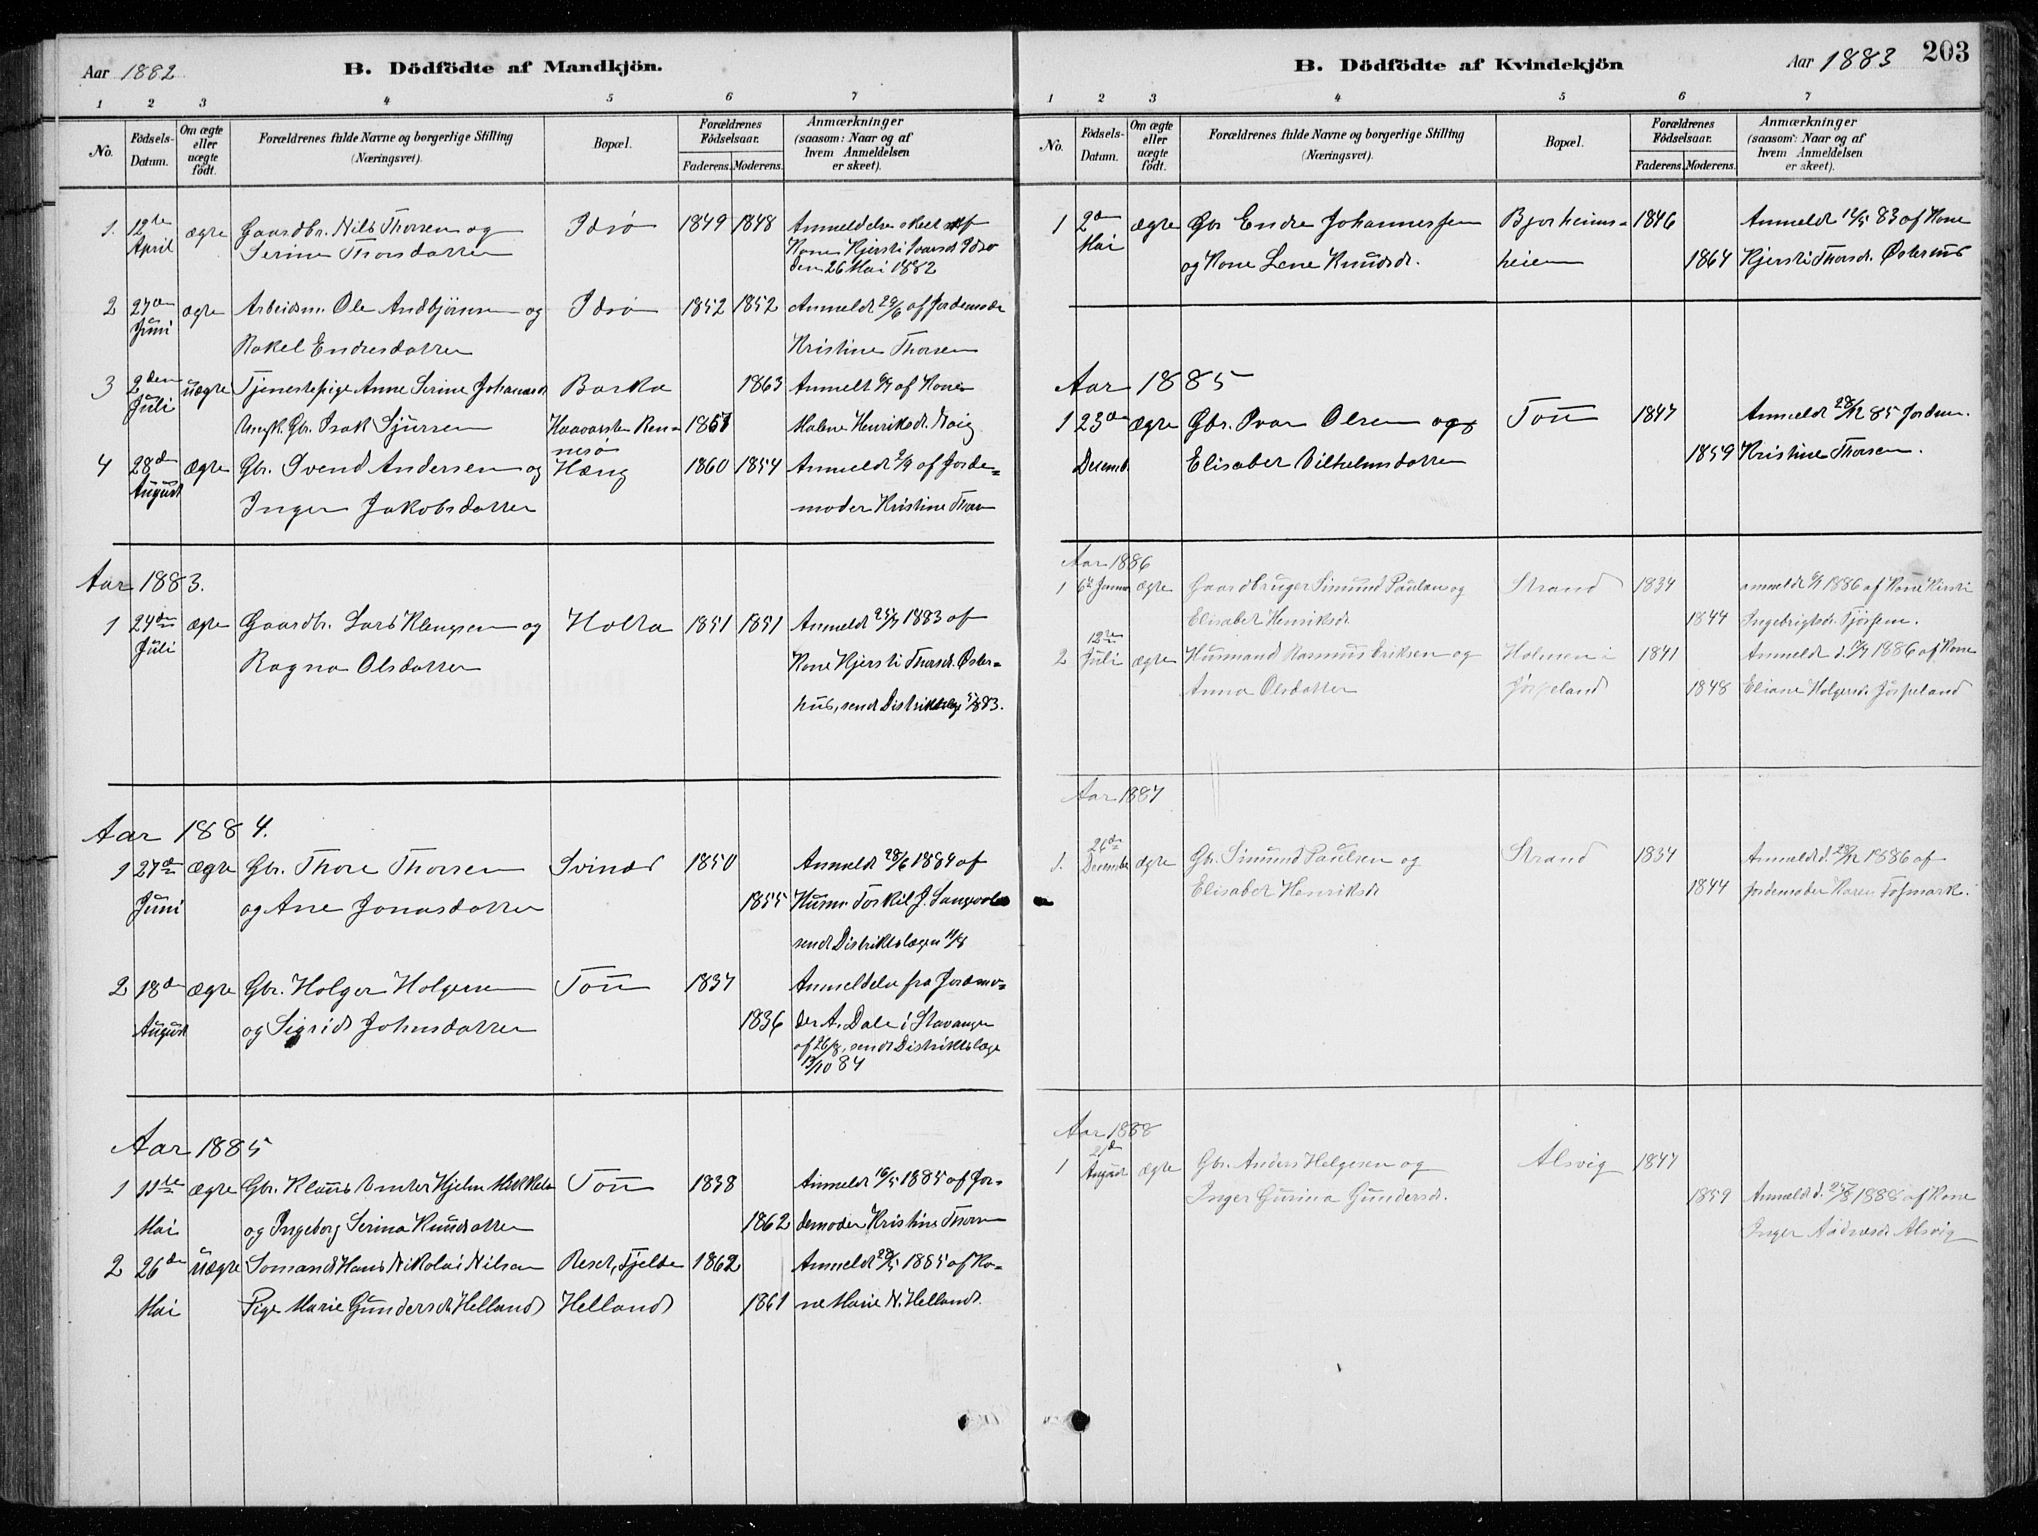 Aar 1882
B. Dödfödte af Mandkjön.
1 2 3 4 5 6 7
No.
Födsels-Datum.
Om ægte eller uægte födt.
Forældrenes fulde Navne og borgerlige Stilling (Næringsvei).
Bopæl.
Forældrenes Födselsaar.
Faderens. Moderens.
Anmærkninger (saasom: Naar og af hvem Anmeldelsen er skeet).
1. 12te ægte Gaardbr. Nils Thorsen og Idsø 1849 1848 Anmeldelse skeet af
April Serine Thorsdatter Kone Kjersti Ivarsd. Idsø
den 26 Mai 1882
2 27de ægte Arbeidsm. Ole Andbjörnsen og Idsø 1852 1852 Anmeldt 29/6 af Jordemoder
Juni Rakel Endresdatter Kristine Thorsen
3 2den uægte Tjenestepige Anne Serine Johannesd. Barka 1863 Anmelt 6/7 af Kone
Juli Ungk. Gbr. Isak Sjursen Haavarstein Ren- 1861 Malene Henriksd. Vaig
nesø
4 28de ægte Gbr. Svend Andersen og Hæng 1860 1854 Anmeldt 2/9 af Jorde-
August Inger Jakobsdatter moder Kristine Thorsen
Aar 1883.
1 24de ægte Gaardbr. Lars Klengsen og Holta 1851 1851 Anmeldt 25/7 1883 af
Juli Ragna Olsdatter Kone Kjersti Thorsd. Øster-
hus, sendt Distriktslæge 5/8 83.
Aar 1884.
1 27de ægte Gbr. Thore Thorsen Svines 1850 Anmeldt 28/6 1884 af
Juni og Ane Jonasdatter 1855 Husm. Torkil J. Langvoll
sendt Distriktslægen 11/8
2 18de ægte Gbr. Holger Holgersen Tou 1837 Anmeldelse fra Jordmo-
August og Sigrid Johnsdatter 1836 der A. Dale i Stavanger
af 26/8, sendt Distriktslæge
13/10 84
Aar 1885
1 11te ægte Gbr. Klaus Vinter Hjelm Mikkelsen Tou 1838 Anmeldt 16/5 1885 af Jor-
Mai og Ingeborg Serina Knudsdatter 1862 demoder Kristine Thorsen
2 26de uægte Sømand Hans Nikolai Nilsen Resel, Tjelde 1862 Anmeldt 28/5 1885 af Ko-
Mai Pige Marie Gundersd. Helland Helland 1861 ne Marie N. Helland.
B. Dödfödte af Kvindekjön
Aar 1883 203
1 2 3 4 5 6 7
No.
Födsels-Datum.
Om ægte eller uægte födt.
Forældrenes fulde Navne og borgerlige Stilling (Næringsvei).
Bopæl.
Forældrenes Födselsaar.
Faderens. Moderens.
Anmærkninger (saasom: Naar og af hvem Anmeldelsen er skeet).
1 2de ægte Gbr Endre Johannessen Bjorheims- 1846 Anmeldt 12/5 83 af Kone
Mai og Kone Lene Knudsdr. heien 1864 Kjersti Thorsd. Østerhus
Aar 1885
1 23de ægte Gbr. Ivar Olsen og Tou 1847 Anmeldt 28/12 85 Jordem.
Decemb. Elisabet Vilhelmsdatter 1859 Kristine Thorsen.
Aar 1886
1 6te Januar ægte Gaardbruger Simund Paulsen og Strand 1834 anmeldt 6/1 1886 af Kone Kirsti
Elisabet Henriksdr. 1844 Ingebrigtsd. Fjössene.
2 12te Juli ægte Husmand Rasmus Eriksen og Holmen i 1841 Anmeldt d. 17/7 1886 af Kone
Anna Olsdatter Jøspeland 1848 Eliane Holgersd. Jøspeland
Aar 1887
1. 26de December ægte Gbr. Simund Paulsen og Strand 1834 Anmeldt d. 28/12 1886 af
Elisabet Henriksdr 1844 Jordemoder Karen Tofmark.
Aar 1888
1 21de August ægte Gbr. Anders Helgesen og Alsvig 1847
Inger Gurina Gundersd. 1859 Anmeldt d. 25/8 1888 af Kone
Inger Aadnesd. Alsvig